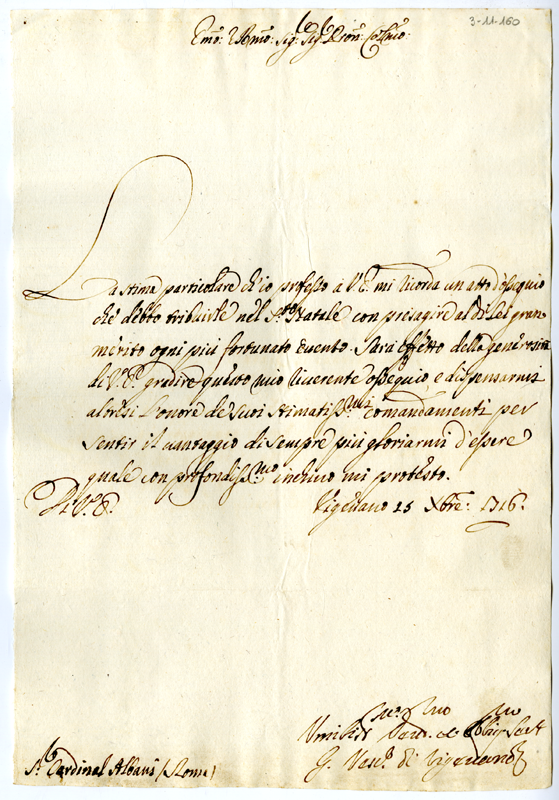 3-11-160
Emo: e Rmo: Sig.r Sig.r Pron: Colmo:
La stima particolare ch'io professo à V.E. mi ricorda un atto d'ossequio
che debbo tributarle nel S.to Natale con presagire al di Lei gran
merito ogni più fortunato evento. Sarà effetto della generosità
di V.E. gradire questo mio riverente ossequio, e dispensarmi
altresì l'onore de suoi stimatiss.mi comandamenti per
sentir il vantaggio di sempre più gloriarmi d'essere
quale con profondiss.mo inchino mi protesto.
Di V.E. Vigevano 25 Xbre: 1716.
Umiliss.mo Ser.
G. Ves.o di Vigevano
S.r Cardinal Albani (Roma)